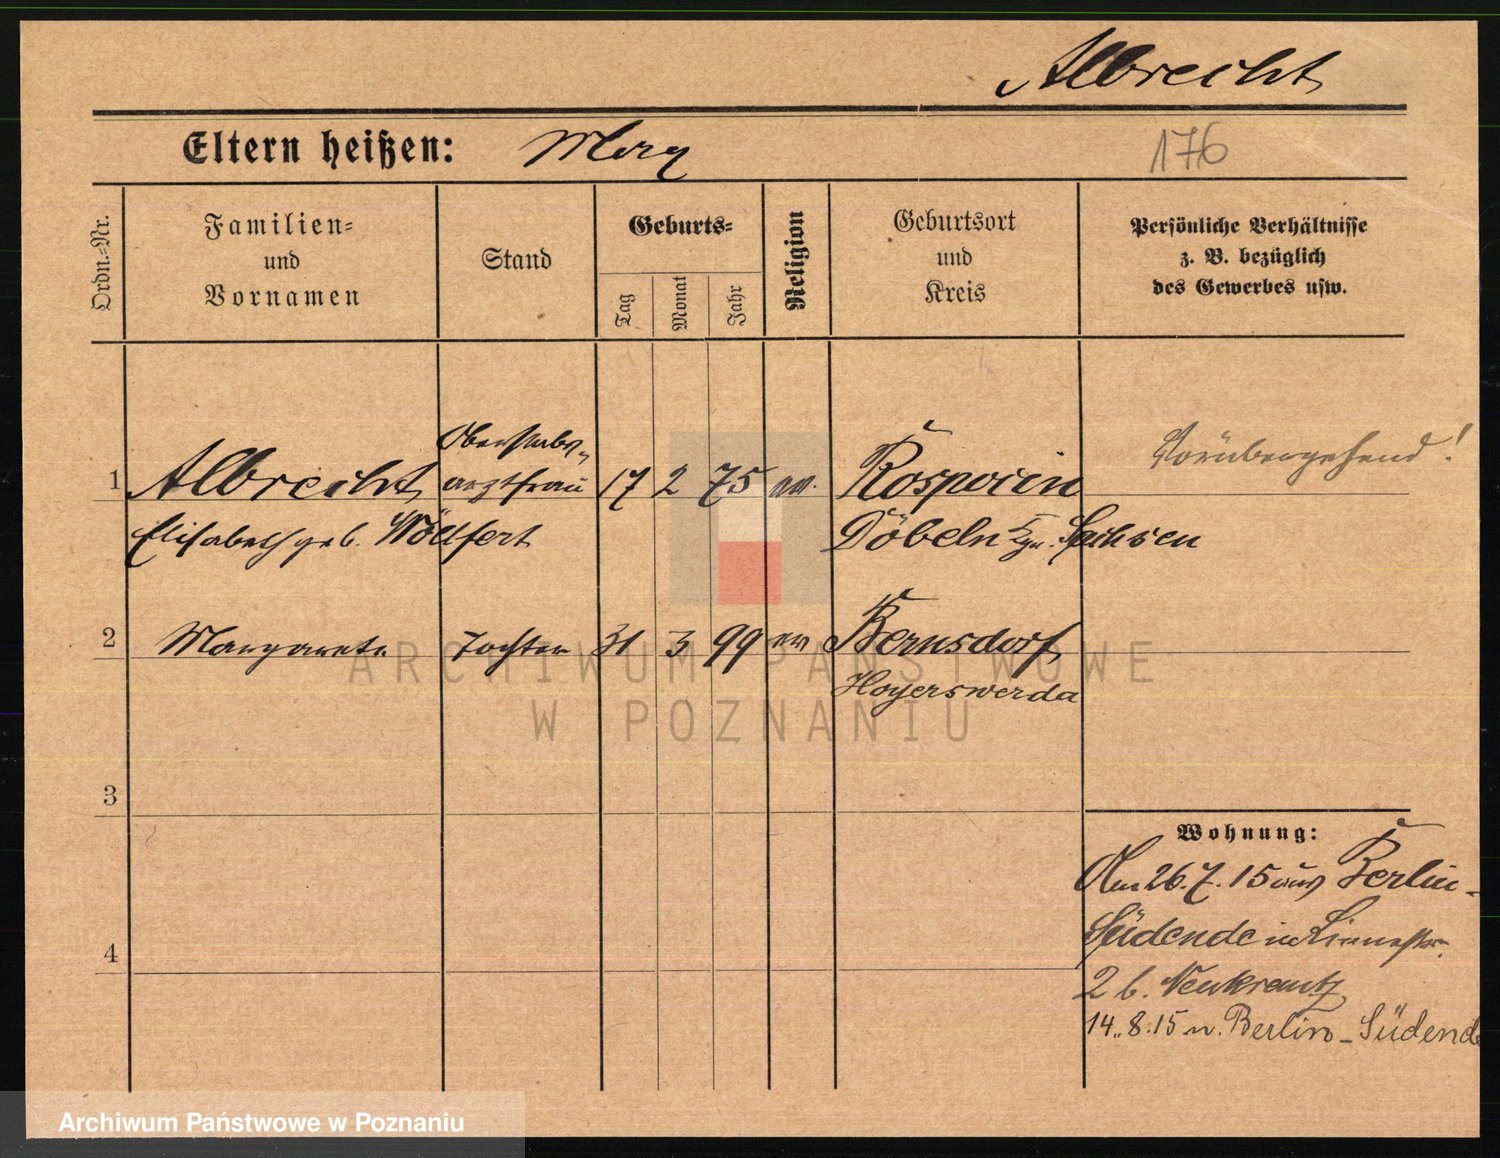 Albrecht
Eltern heißen: Marx
176
Ordn.=Nr.
Familien=
und
Vornamen
Stand
Geburts=
Tag
Monat
Jahr
Religion
Geburtsort
und
Kreis
Persönliche Verhältnisse
z. B. bezüglich
des Gewerbes usw.
Oberstabs-
1 Albrecht arztfrau 17 2 75 ev.
Elisabeth geb. Wölffert
Döbeln Kgr. Sachsen
Vorübergehend!
2 Margarete Tochter 31 3 99 ev Bernsdorf
Hoyerswerda
3
4
Wohnung:
Am 26.7.15 aus Berlin-
Südende in
2 b. Neukrantz
14.8.15 n. Berlin-Südende
ARCHIWUM PAŃSTWOWE
W POZNANIU
Archiwum Państwowe w Poznaniu